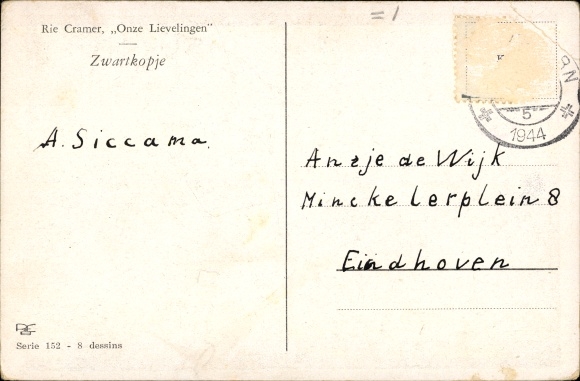 Rie Cramer, „Onze Lievelingen"
Zwartkopje
A. Siccama
=1
K
RN
5
1944
Anzje de Wijk
Minckelerplein 8
Eindhoven
Serie 152 - 8 dessins